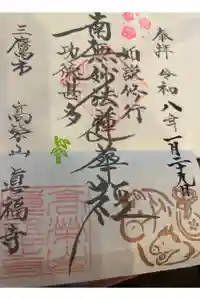 奉拝 令和八年一月二十九日
如説修行
南無妙法蓮華経
功徳甚多
三鷹市 高峯山 眞福寺